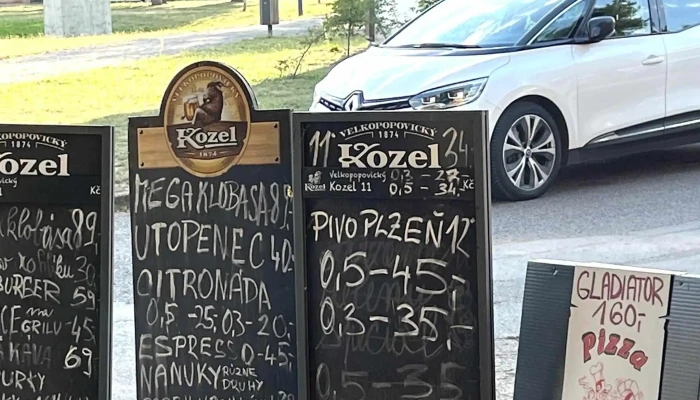 VELKOPOPOVICKÝ
Kozel
1874
Kč
klobása 89,-
BURGER 59
GRILU 45
KÁVA 69
VELKOPOPOVICKÝ
Kozel
1874
MEGAKLOBASA 89,-
UTOPENEC 40,-
CITRONÁDA
0,5 - 25,- 0,3 - 20,-
ESPRESSO - 45,-
NANUKY RŮZNE
DRUHY
VELKOPOPOVICKÝ
1874
11° Kozel 34
Velkopopovický 0,3 - 27,-
Kozel 11 0,5 - 34,- Kč
PIVO PLZEŇ 12°
0,5 - 45,-
0,3 - 35,-
0,5 - 35
GLADIATOR
160,-
Pizza